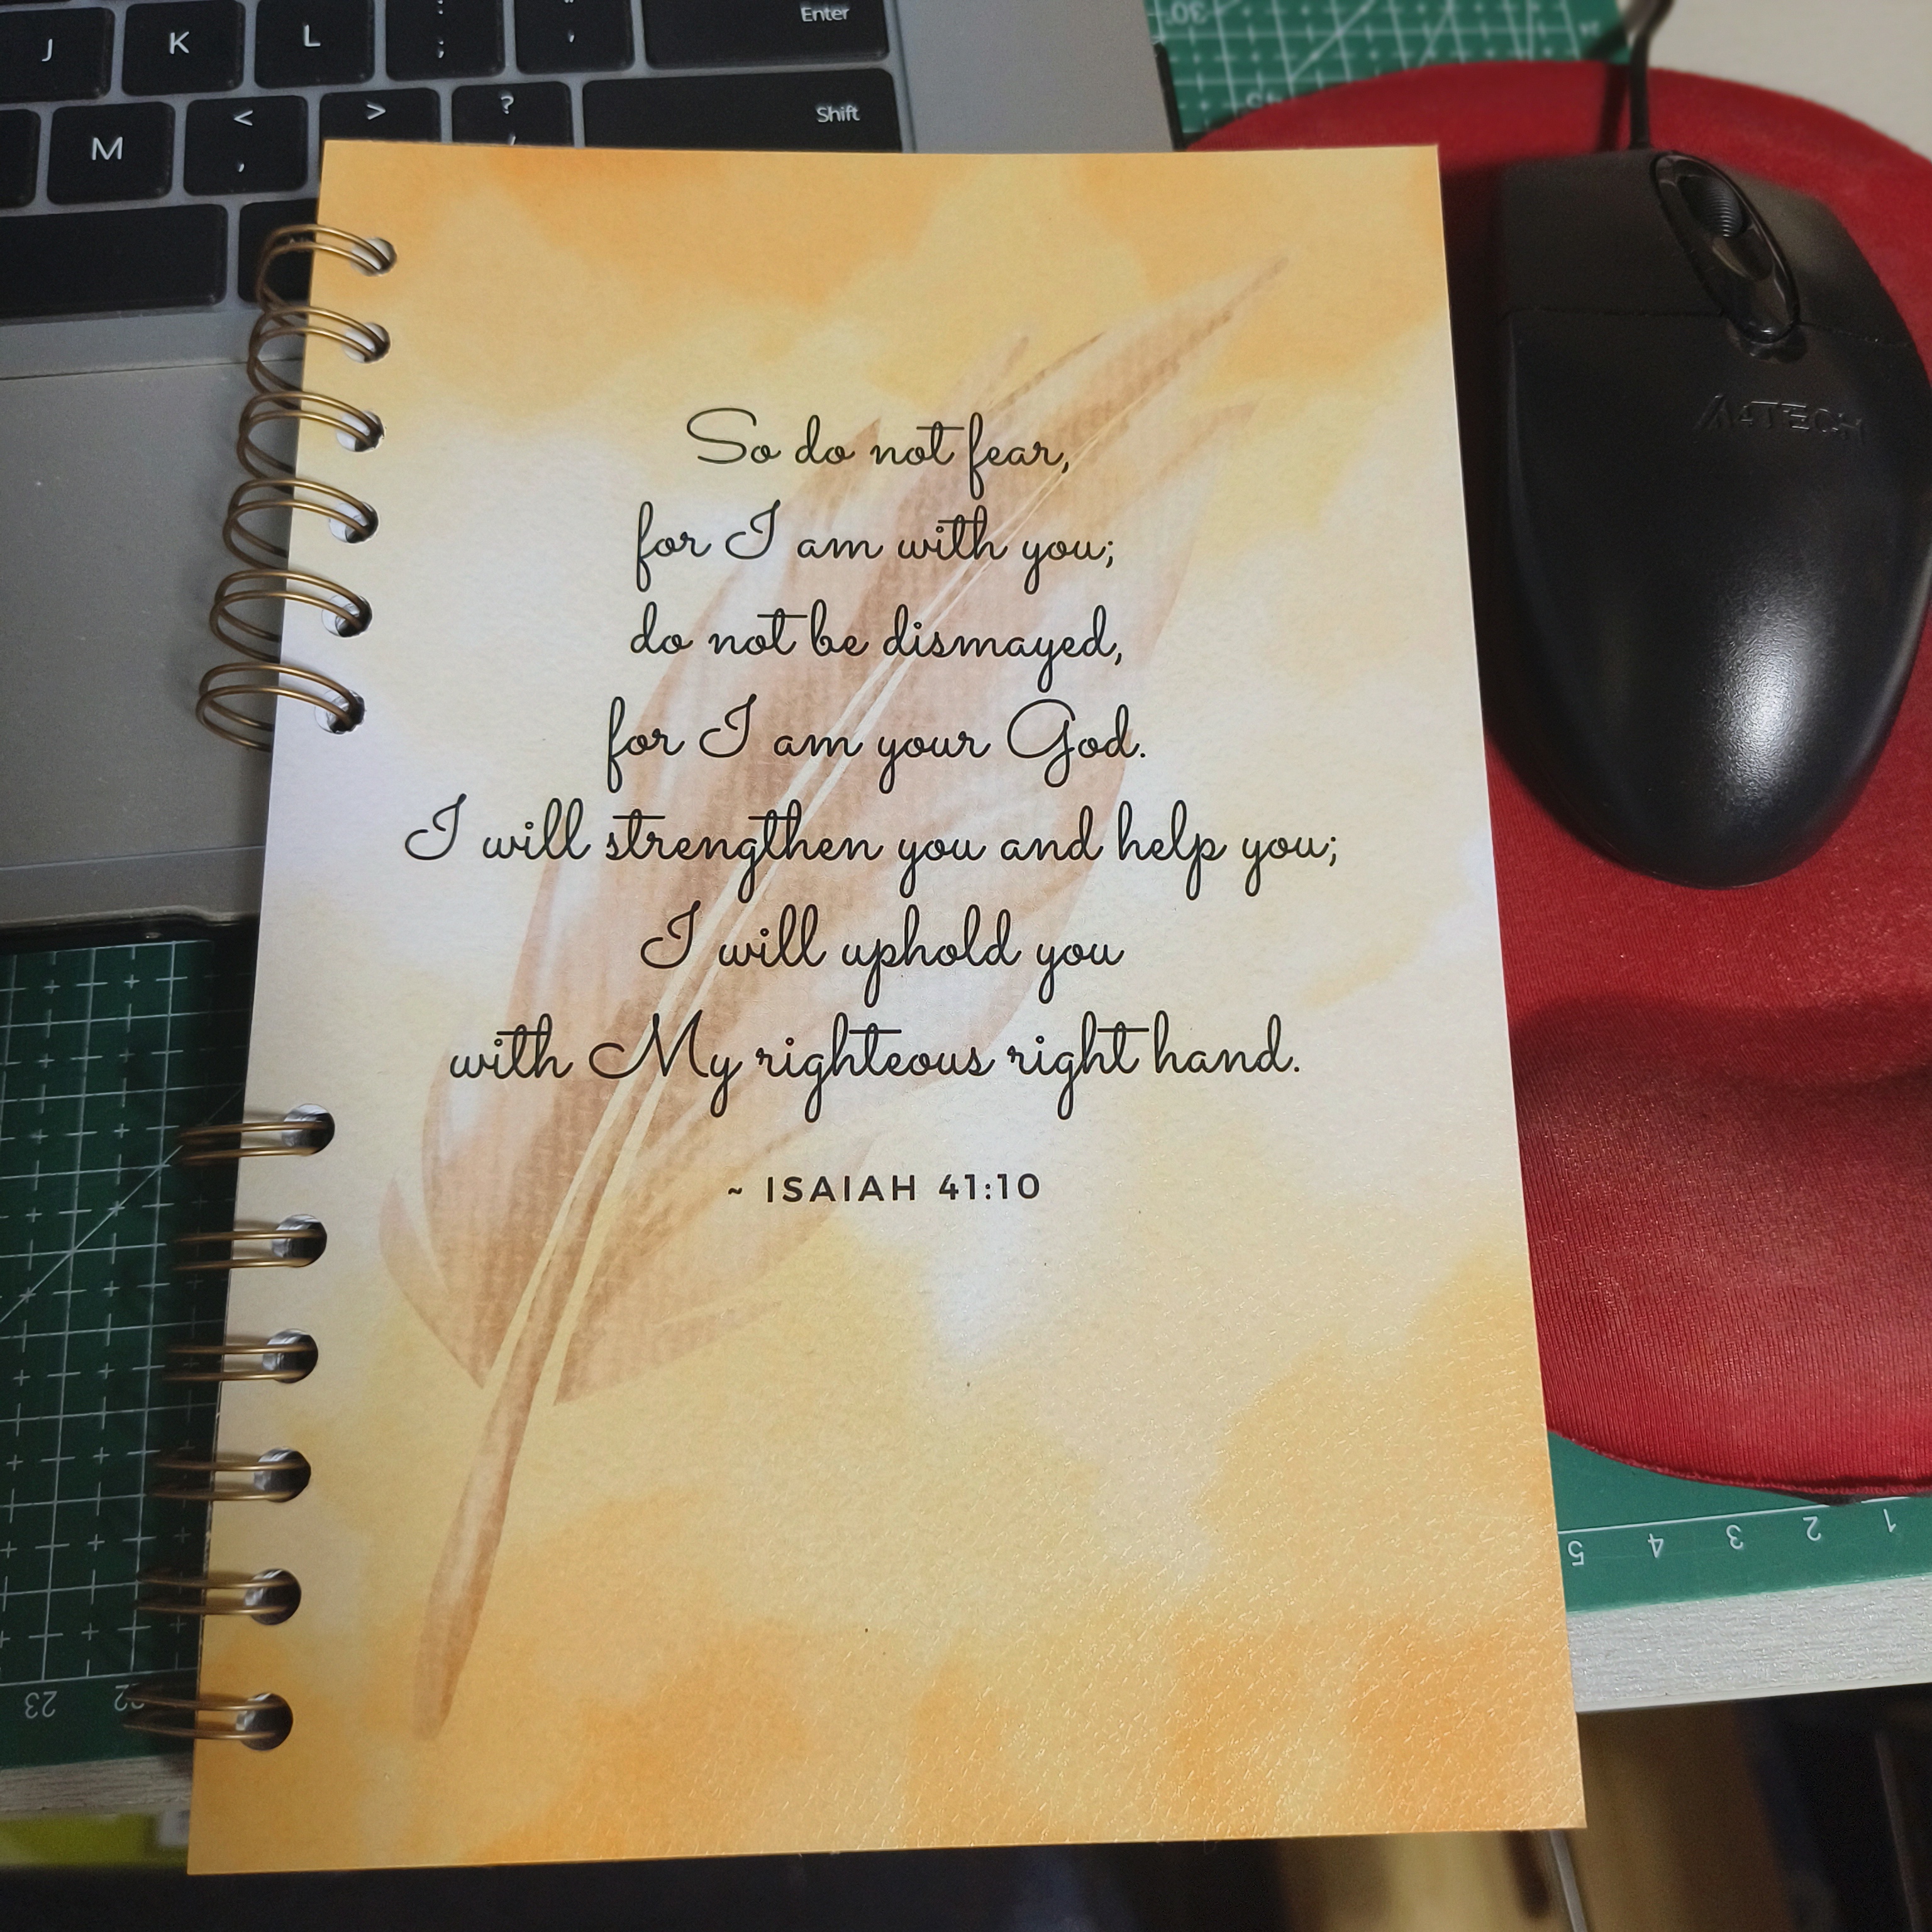 Enter
J K L : ; " '
Shift
M < , > ?
30
A4TECH
So do not fear,
for I am with you;
do not be dismayed,
for I am your God.
I will strengthen you and help you;
I will uphold you
with My righteous right hand.
~ ISAIAH 41:10
5 4 3 2 1
23 22